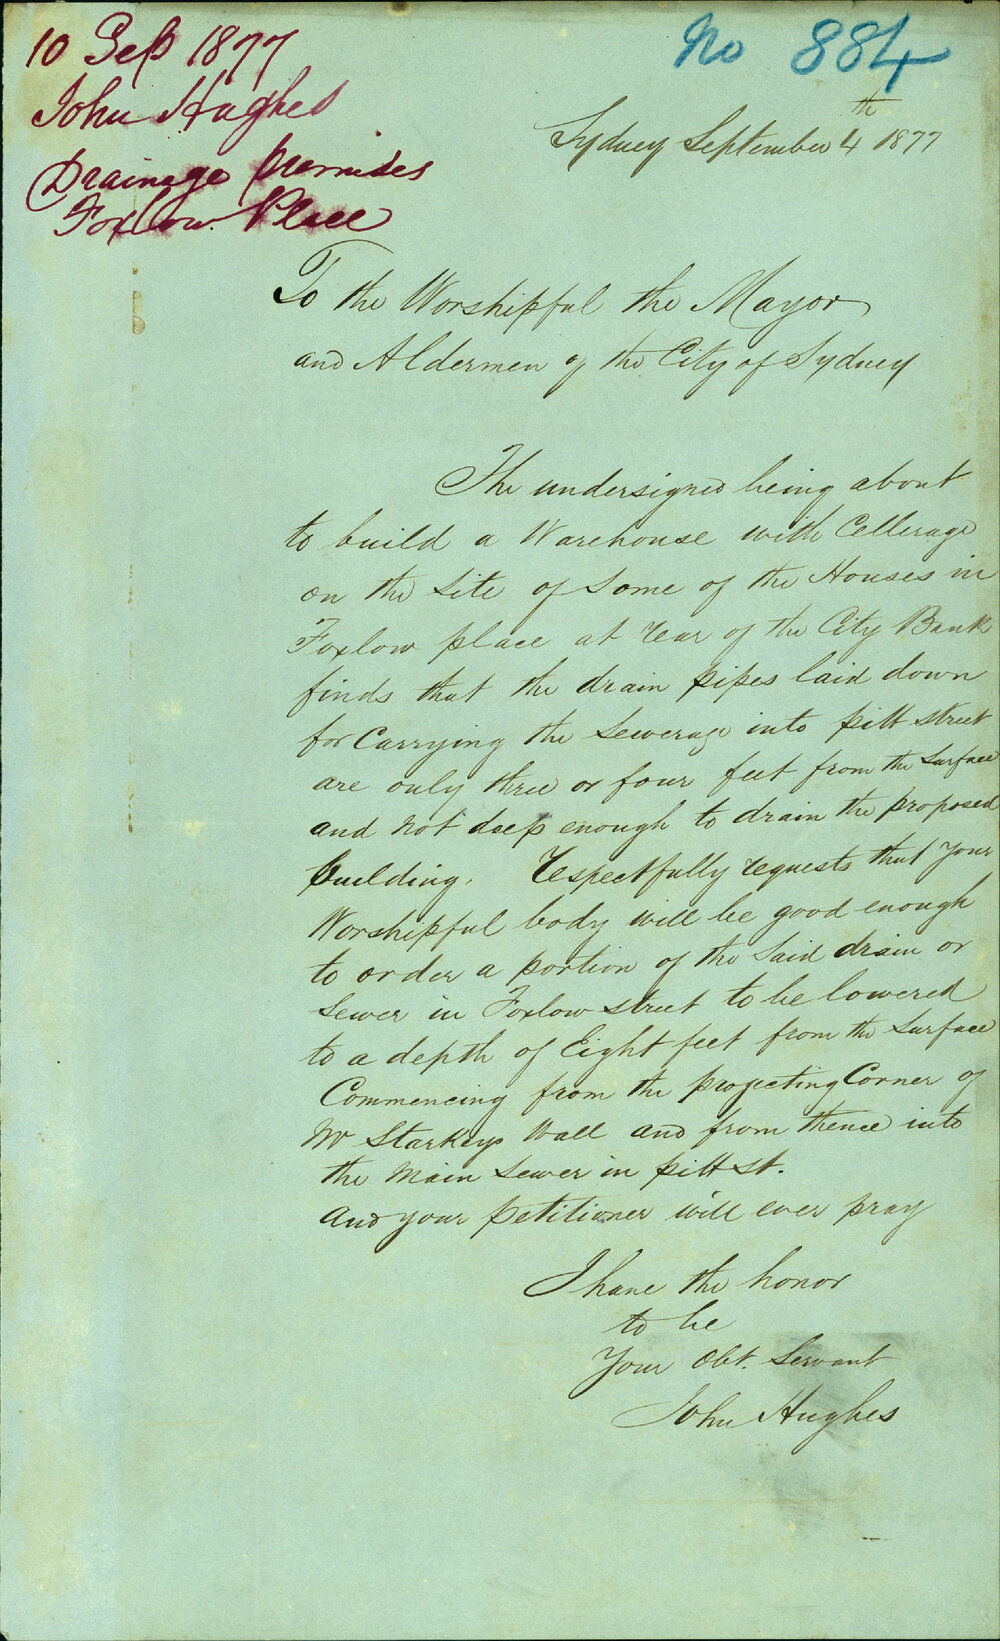 10 Sep 1877
John Hughes
Drainage premises
Foxlow Place
No 884
Sydney September 4th 1877
To the Worshipful the Mayor
and Aldermen of the City of Sydney
The undersigned being about
to build a Warehouse with Cellerage
on the Site of Some of the Houses in
Foxlow place at rear of the City Bank
finds that the drain pipes laid down
for Carrying the Sewerage into pitt street
are only three or four feet from the Surface
and not deep enough to drain the proposed
building. Respectfully requests that your
Worshipful body will be good enough
to order a portion of the Said drain or
Sewer in Foxlow street to be lowered
to a depth of Eight feet from the Surface
Commencing from the projecting Corner of
Mr Starkeys Wall and from thence into
the Main Sewer in pitt st.
And your petitioner will ever pray
I have the honor
to be
Your Obt. Servant
John Hughes